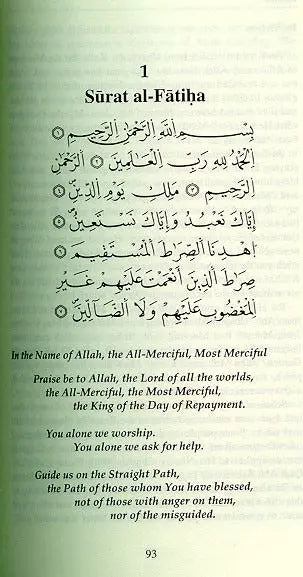 1
Sūrat al-Fātiḥa
بِسْمِ اللَّهِ الرَّحْمَٰنِ الرَّحِيمِ ١
الْحَمْدُ لِلَّهِ رَبِّ الْعَالَمِينَ ٢ الرَّحْمَٰنِ
الرَّحِيمِ ٣ مَلِكِ يَوْمِ الدِّينِ ٤
إِيَّاكَ نَعْبُدُ وَإِيَّاكَ نَسْتَعِينُ ٥
اهْدِنَا الصِّرَاطَ الْمُسْتَقِيمَ ٦
صِرَاطَ الَّذِينَ أَنْعَمْتَ عَلَيْهِمْ غَيْرِ
الْمَغْضُوبِ عَلَيْهِمْ وَلَا الضَّالِّينَ ٧
In the Name of Allah, the All-Merciful, Most Merciful
Praise be to Allah, the Lord of all the worlds,
the All-Merciful, the Most Merciful,
the King of the Day of Repayment.
You alone we worship.
You alone we ask for help.
Guide us on the Straight Path,
the Path of those whom You have blessed,
not of those with anger on them,
nor of the misguided.
93